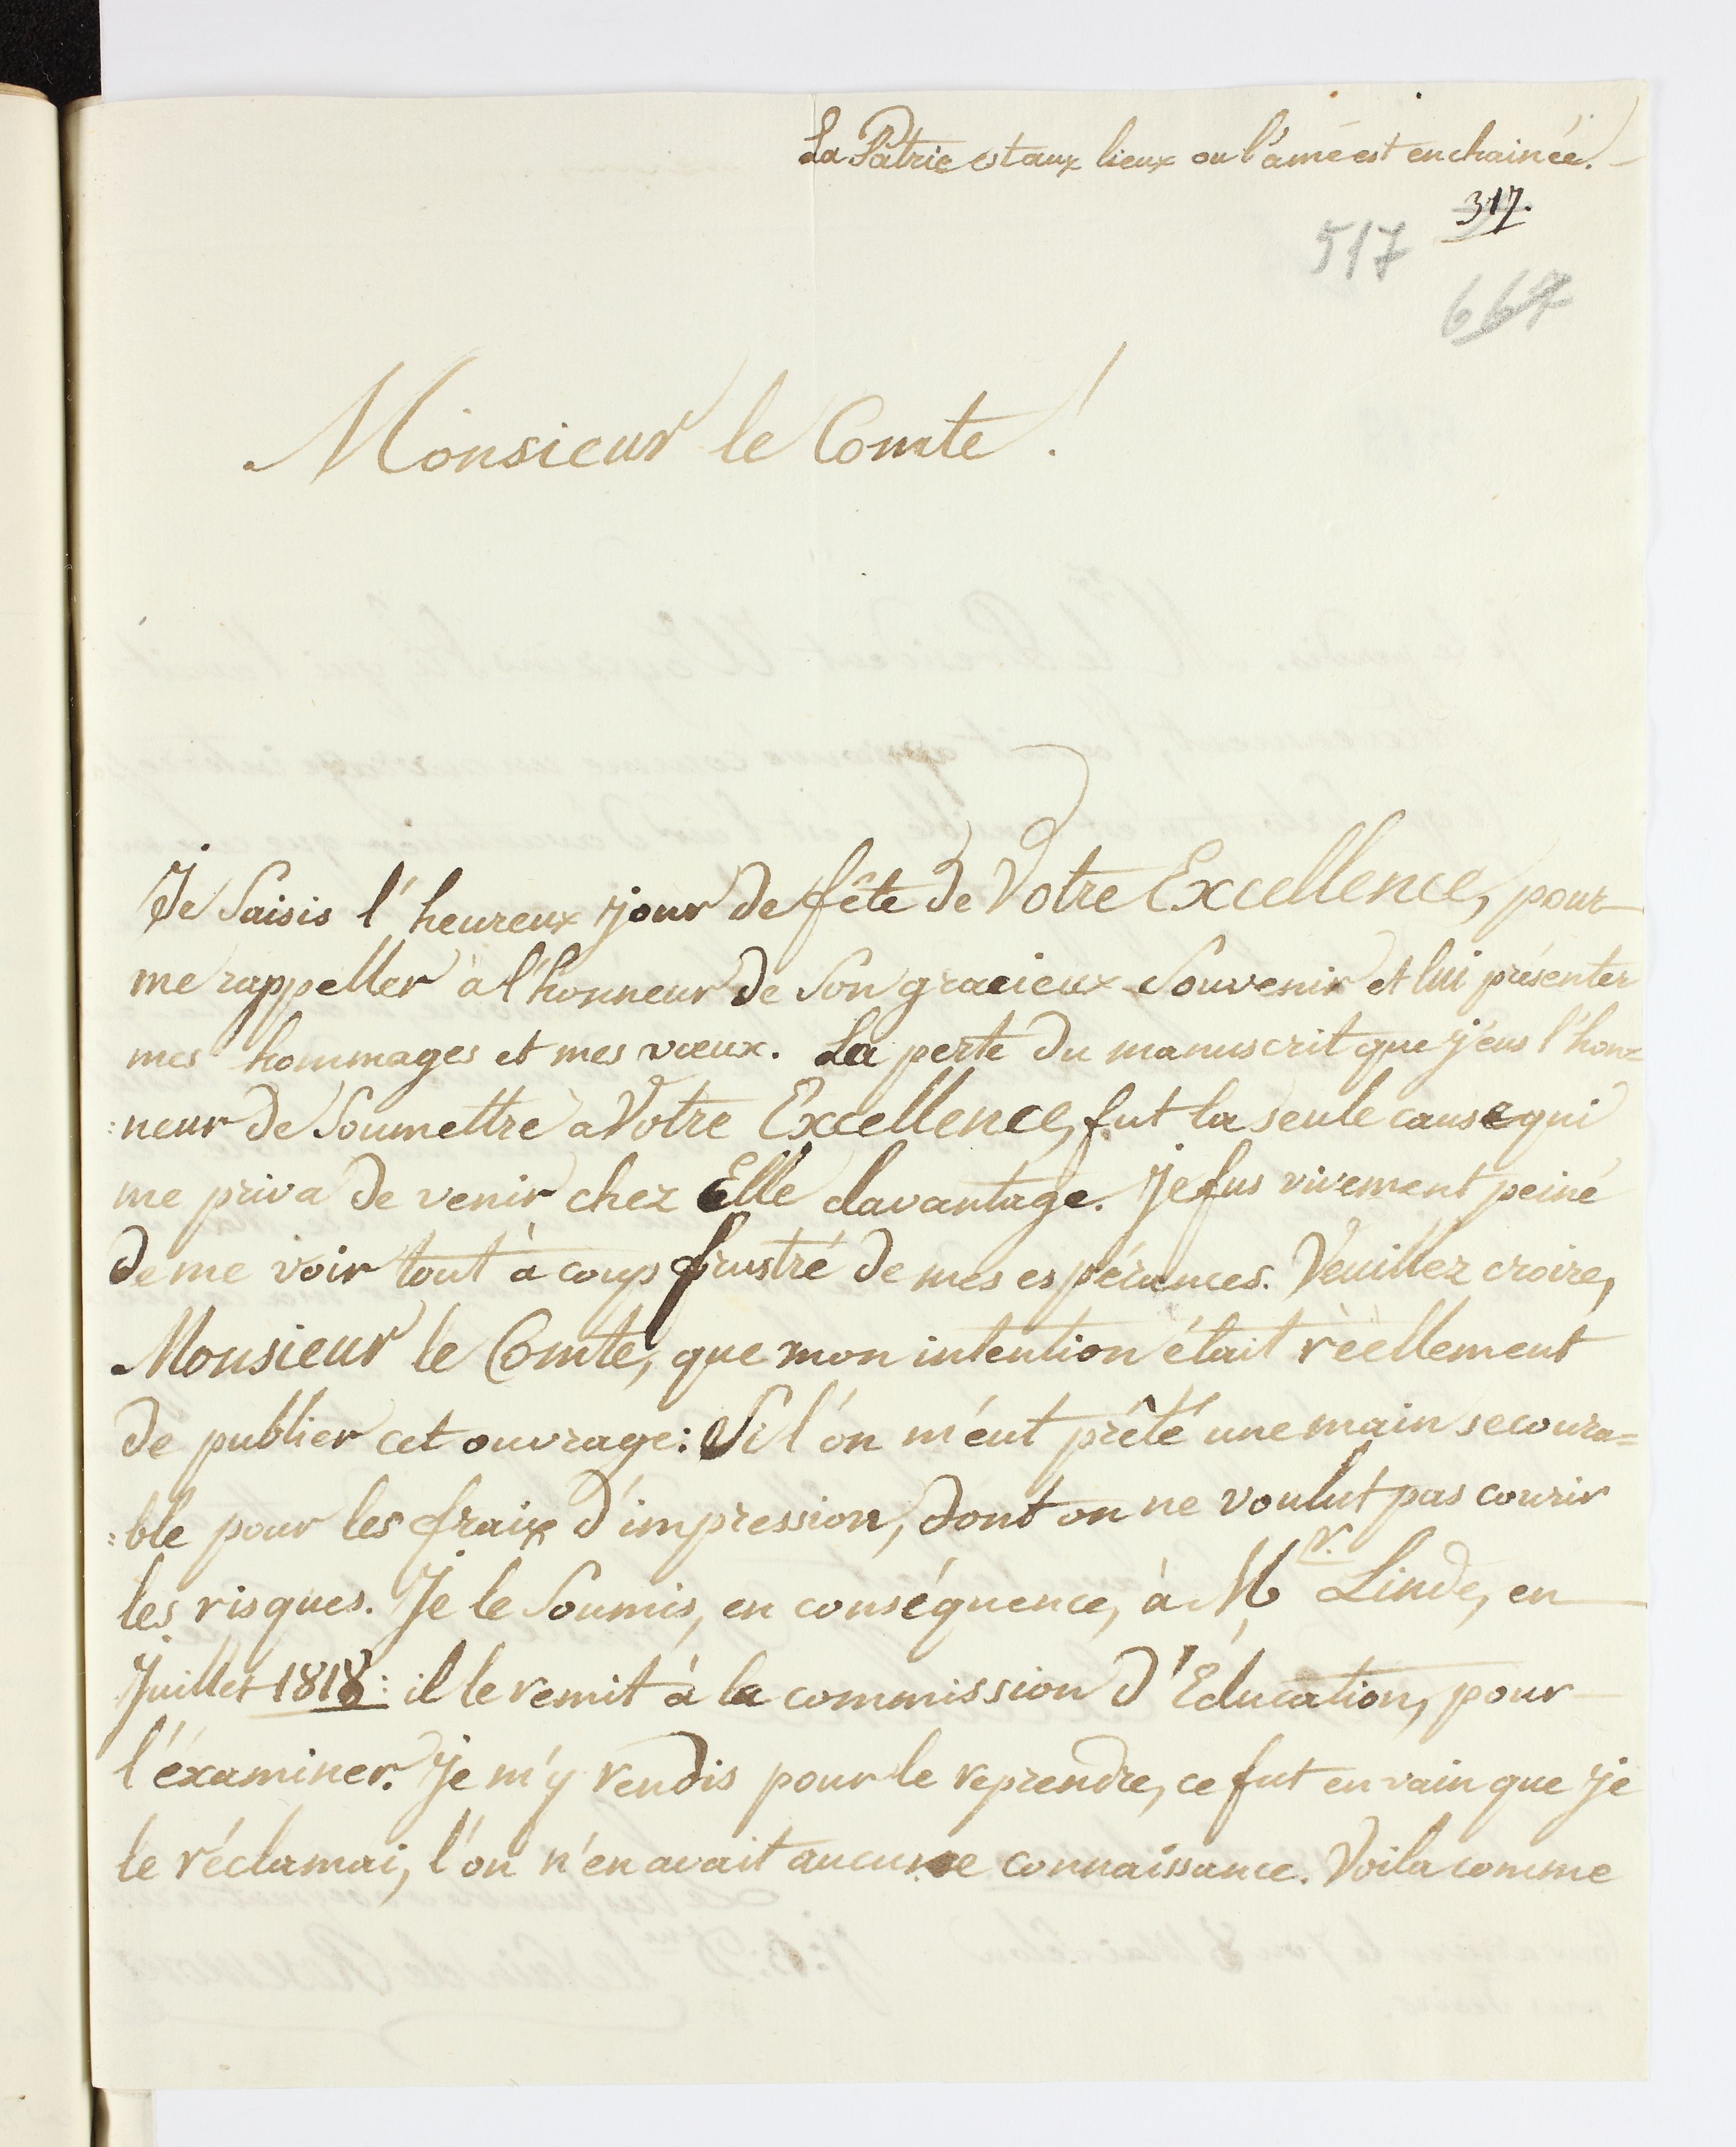 La Patrie est aux lieux ou l'ame est enchainée.
317.
517
667
Monsieur le Comte!
Je saisis l'heureux jour de fête de Votre Excellence, pour
me rappeller à l'honneur de son gracieux souvenir et lui présenter
mes hommages et mes vœux. La perte du manuscrit que j'eus l'hon=
=neur de soumettre a Votre Excellence, fut la seule cause qui
me priva de venir chez Elle davantage. Je fus vivement peiné
de me voir tout à coup frustré de mes espérances. Veuillez croire,
Monsieur le Comte, que mon intention était réellement
de publier cet ouvrage: Si l'on m'eut prêté une main secoura=
=ble pour les fraix d'impression, dont on ne voulut pas courir
les risques. Je le soumis, en conséquence, à Mr. Linde, en
Juillet 1818: il le remit à la commission d'Education, pour
l'éxaminer. Je m'y rendis pour le reprendre, ce fut en vain que je
le réclamai, l'on n'en avait aucune connaissance. Voila comme